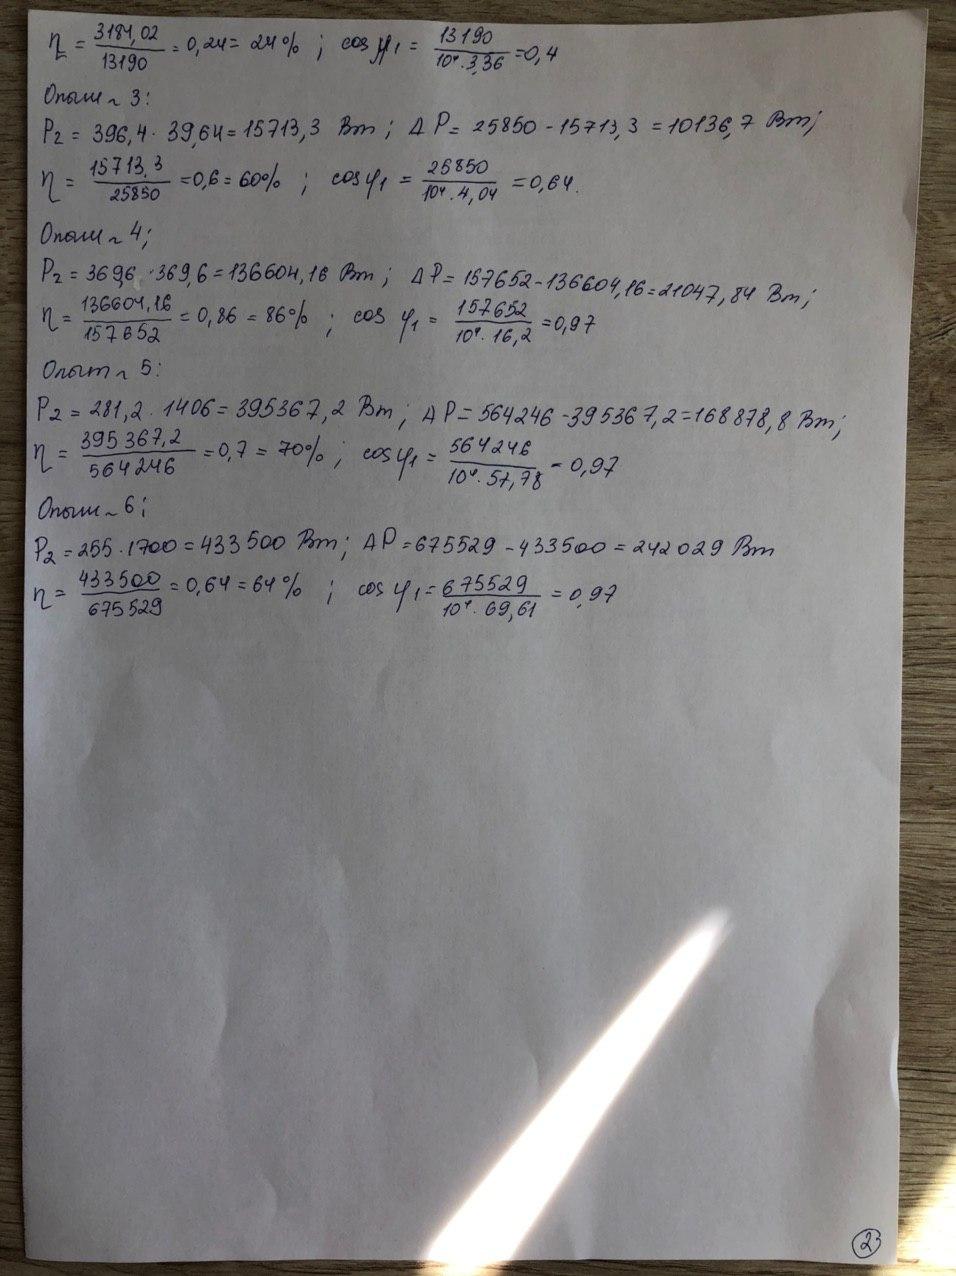 η = 3184,02 / 13190 = 0,24 = 24% ; cos φ₁ = 13190 / 10⁴·3,36 = 0,4
Опыт ~ 3:
P₂ = 396,4 · 39,64 = 15713,3 Вт ; ΔP = 25850 - 15713,3 = 10136,7 Вт;
η = 15713,3 / 25850 = 0,6 = 60% ; cos φ₁ = 25850 / 10⁴·4,04 = 0,64.
Опыт ~ 4;
P₂ = 369,6 · 369,6 = 136604,16 Вт ; ΔP = 157652 - 136604,16 = 21047,84 Вт;
η = 136604,16 / 157652 = 0,86 = 86% ; cos φ₁ = 157652 / 10⁴·16,2 = 0,97
Опыт ~ 5:
P₂ = 281,2 · 1406 = 395367,2 Вт ; ΔP = 564246 - 395367,2 = 168878,8 Вт;
η = 395367,2 / 564246 = 0,7 = 70% ; cos φ₁ = 564246 / 10⁴·57,78 = 0,97
Опыт ~ 6;
P₂ = 255 · 1700 = 433500 Вт; ΔP = 675529 - 433500 = 242029 Вт
η = 433500 / 675529 = 0,64 = 64% ; cos φ₁ = 675529 / 10⁴·69,61 = 0,97
2